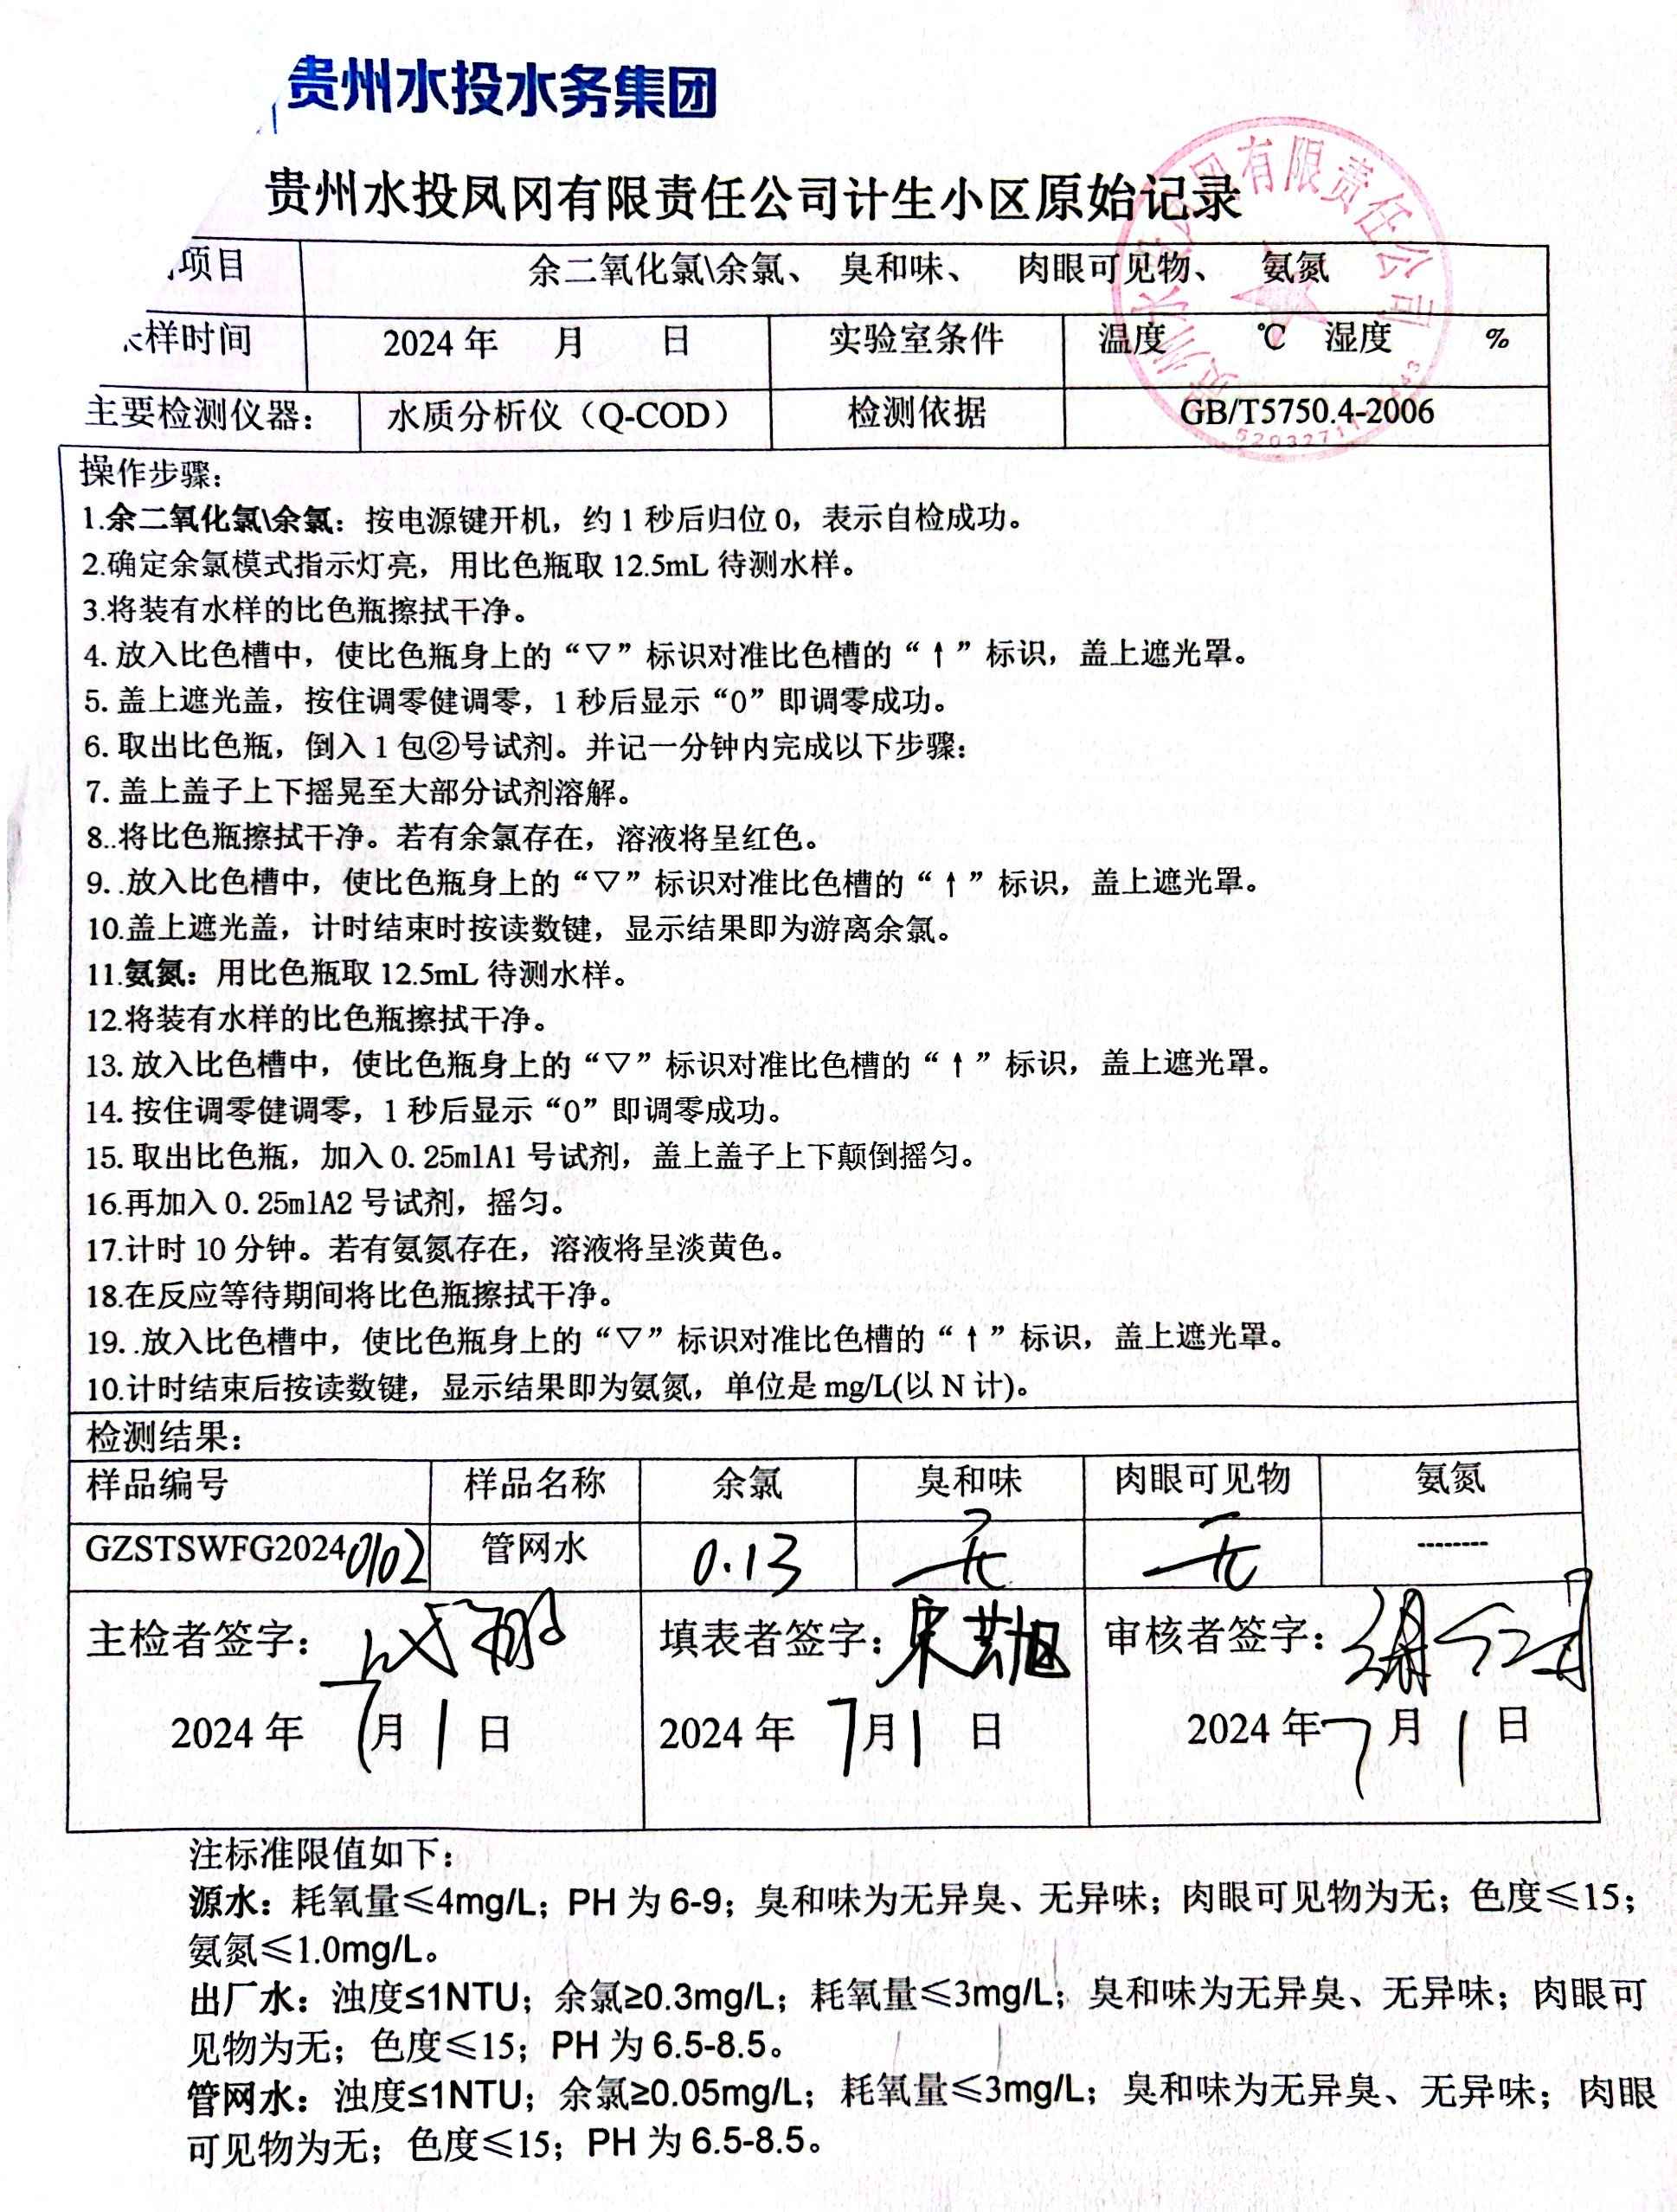 贵州水投水务集团
贵州水投凤冈有限责任公司计生小区原始记录
项目 余二氧化氯\余氯、 臭和味、 肉眼可见物、 氨氮
样时间 2024年 月 日 实验室条件 温度 ℃ 湿度 %
主要检测仪器： 水质分析仪（Q-COD） 检测依据 GB/T5750.4-2006
操作步骤：
1.余二氧化氯\余氯：按电源键开机，约1秒后归位0，表示自检成功。
2.确定余氯模式指示灯亮，用比色瓶取12.5mL待测水样。
3.将装有水样的比色瓶擦拭干净。
4. 放入比色槽中，使比色瓶身上的“▽”标识对准比色槽的“↑”标识，盖上遮光罩。
5. 盖上遮光盖，按住调零健调零，1秒后显示“0”即调零成功。
6. 取出比色瓶，倒入1包②号试剂。并记一分钟内完成以下步骤：
7. 盖上盖子上下摇晃至大部分试剂溶解。
8..将比色瓶擦拭干净。若有余氯存在，溶液将呈红色。
9. .放入比色槽中，使比色瓶身上的“▽”标识对准比色槽的“↑”标识，盖上遮光罩。
10.盖上遮光盖，计时结束时按读数键，显示结果即为游离余氯。
11.氨氮：用比色瓶取12.5mL待测水样。
12.将装有水样的比色瓶擦拭干净。
13. 放入比色槽中，使比色瓶身上的“▽”标识对准比色槽的“↑”标识，盖上遮光罩。
14. 按住调零健调零，1秒后显示“0”即调零成功。
15. 取出比色瓶，加入0.25mlA1号试剂，盖上盖子上下颠倒摇匀。
16.再加入0.25mlA2号试剂，摇匀。
17.计时10分钟。若有氨氮存在，溶液将呈淡黄色。
18.在反应等待期间将比色瓶擦拭干净。
19. .放入比色槽中，使比色瓶身上的“▽”标识对准比色槽的“↑”标识，盖上遮光罩。
10.计时结束后按读数键，显示结果即为氨氮，单位是mg/L(以N计)。
检测结果：
样品编号 样品名称 余氯 臭和味 肉眼可见物 氨氮
GZSTSWFG20240102 管网水 0.13 无 无 --------
主检者签字： 填表者签字： 审核者签字：
2024年7月1日 2024年7月1日 2024年7月1日
注标准限值如下：
源水：耗氧量≤4mg/L；PH为6-9；臭和味为无异臭、无异味；肉眼可见物为无；色度≤15；
氨氮≤1.0mg/L。
出厂水：浊度≤1NTU；余氯≥0.3mg/L；耗氧量≤3mg/L；臭和味为无异臭、无异味；肉眼可
见物为无；色度≤15；PH为6.5-8.5。
管网水：浊度≤1NTU；余氯≥0.05mg/L；耗氧量≤3mg/L；臭和味为无异臭、无异味；肉眼
可见物为无；色度≤15；PH为6.5-8.5。